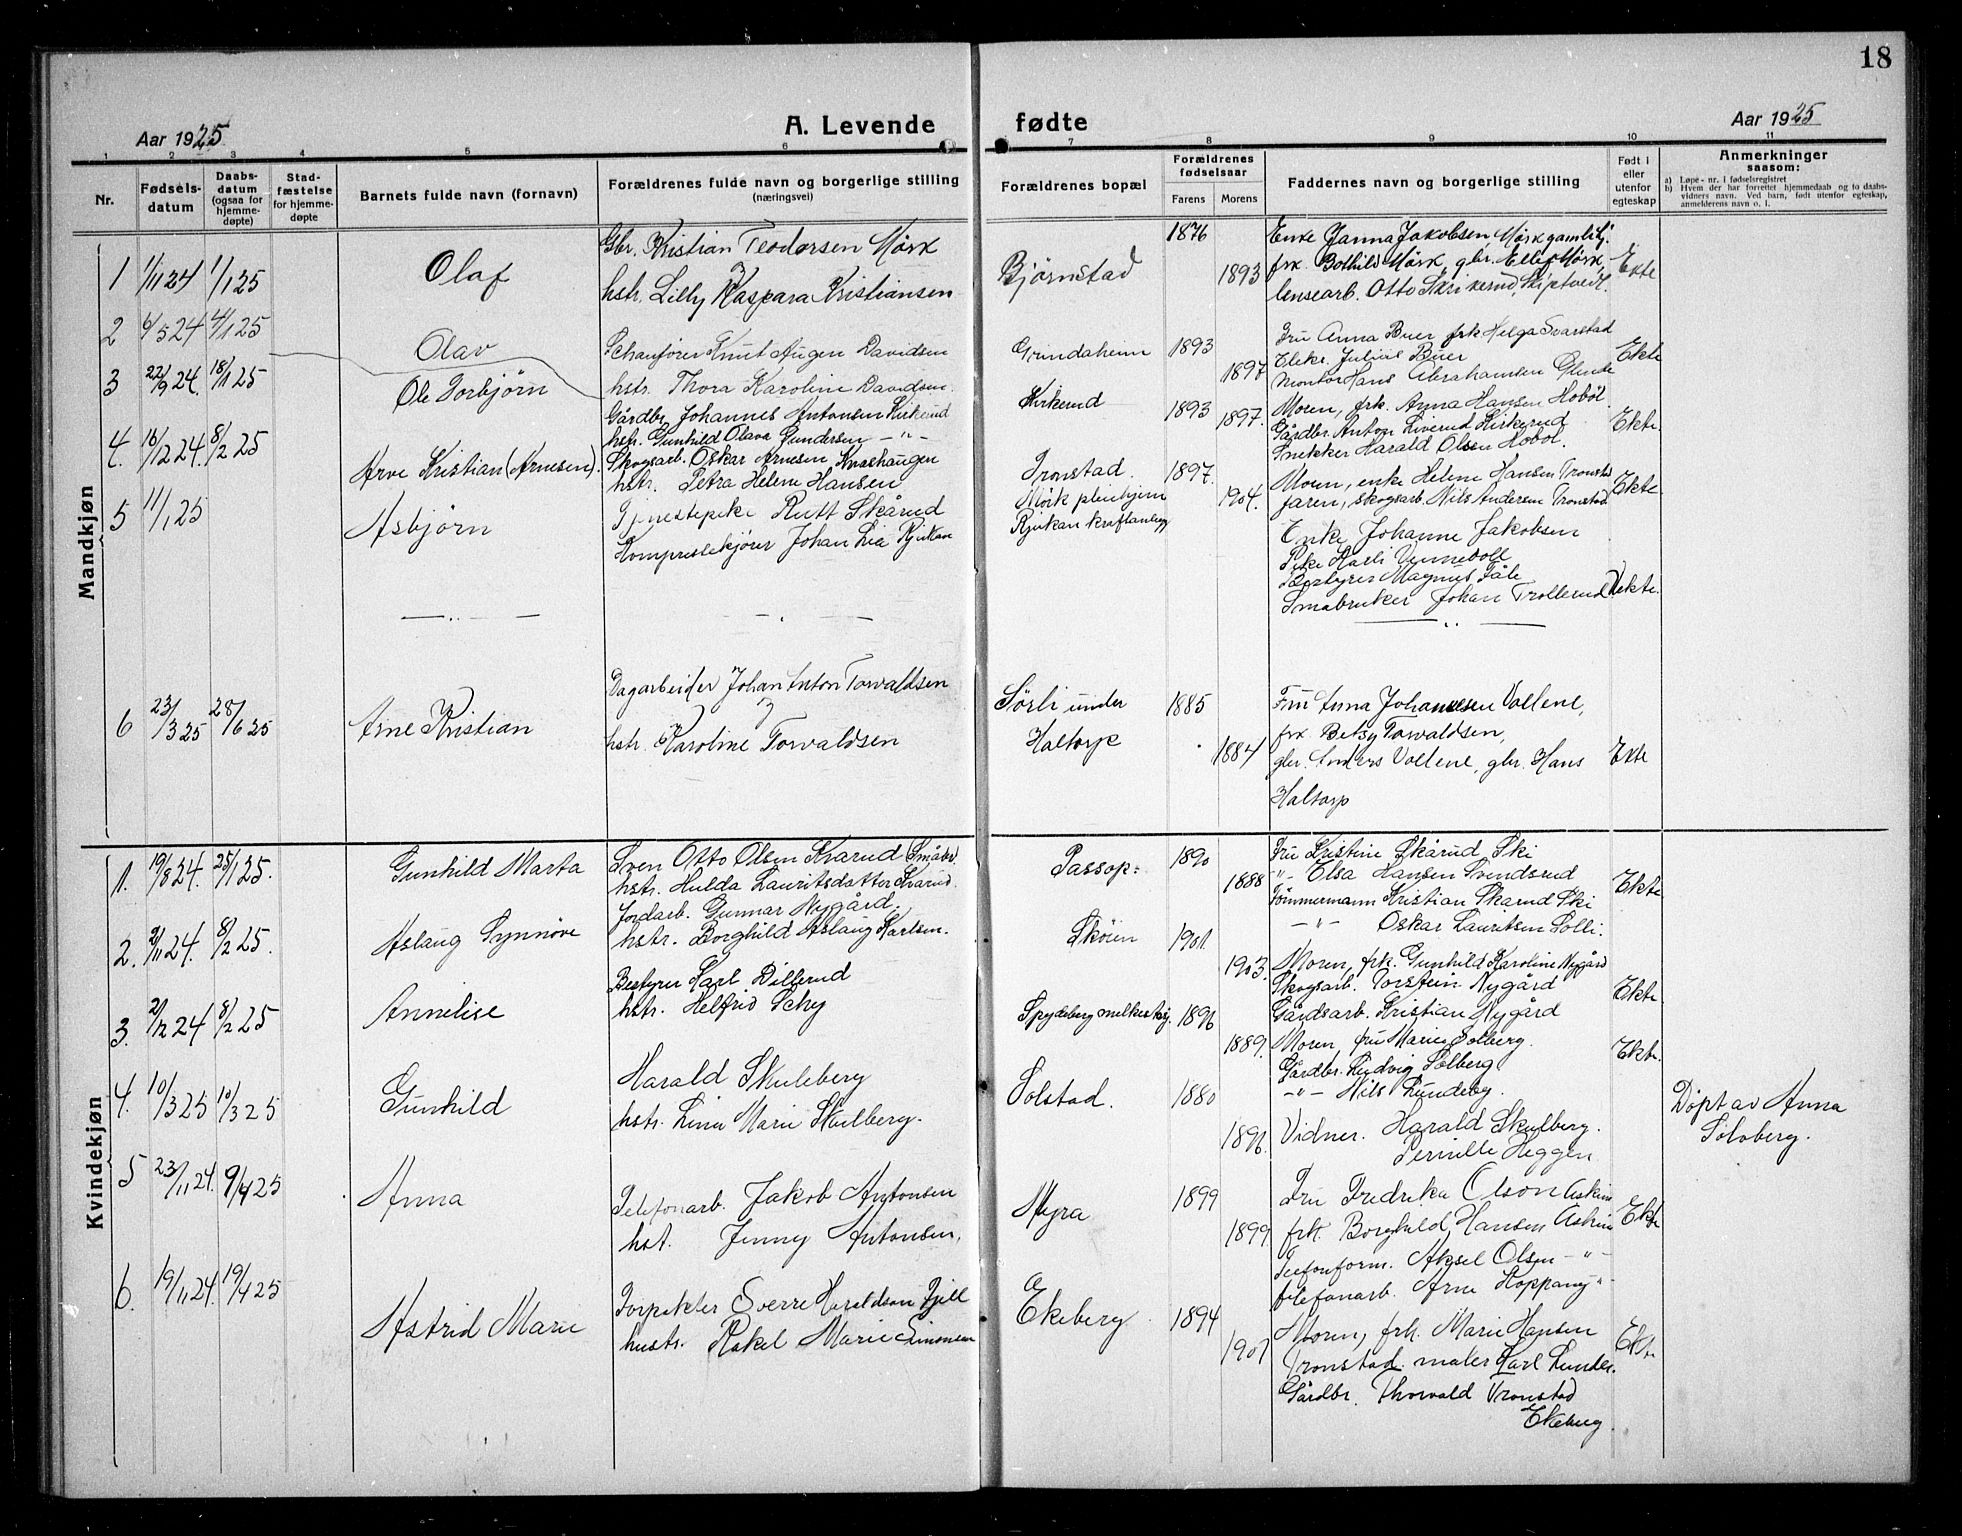 18
Aar 1925
A. Levende
fødte
Aar 1925
1 2 3 4 5 6 7 8 9 10 11
Nr.
Fødsels-
datum
Daabs-
datum
(ogsaa for
hjemme-
døpte)
Stad-
fæstelse
for hjemme-
døpte
Barnets fulde navn (fornavn)
Forældrenes fulde navn og borgerlige stilling
(næringsvei)
Forældrenes bopæl
Forældrenes
fødselsaar
Farens Morens
Faddernes navn og borgerlige stilling
Født i
eller
utenfor
egteskap
Anmerkninger
saasom:
a) Løpe-nr. i fødselsregistret
b) Hvem der har forrettet hjemmedaab og to daabs-
vidners navn. Ved barn, født utenfor egteskap,
anmelderens navn o. l.
Mandkjøn
1 1/11 24 1/1 25 Olaf
Gbr. Kristian Teodorsen Mørk
hstr. Lilly Kaspara Kristiansen
Bjørnstad 1876 1893
Enke Janna Jakobsen Mørk gamlehj.
frk. Bothild Mørk, gbr. Ellef Mørk
lensearb. Otto Skrikerud, Skiptvedt.
Ekte
2 6/5 24 4/1 25 Olav
Schauffører Knut Augen Davidsen
hstr. Thora Karoline Davidsen
Grindaheim 1893 1897
Fru Anna Buer frk Helga Svarstad
Elekr. Julius Buer
Montør Hans Abrahamsen Glende
Ekte
3 22/9 24. 18/1 25 Ole Torbjörn
Gårdbr Johannes Antonsen Kirkerud
hstr. Gunhild Olava Gundersen -"-
Kirkerud 1893 1897.
Moren, frk. Anna Hansen Hoböl
Gårdbr. Anton Liverud Kirkerud
Snekker Harald Olsen Hoböl
Ekte
4. 16/12 24. 8/2 25 Arve Kristian (Arnesen).
Skogsarb. Oskar Arnesen, Knashaugen
hstr. Petra Helene Hansen
Tronstad. 1897. 1904.
Moren, enke Helene Hansen Tronstad
faren, skogsarb. Nils Andersen Tronstad
Ekte
5 11/1 25 Asbjörn
Tjenestepike Rutt Skårud
Kompressekjører Johan Lia Rjukan
Mörk pleiehjem
Rjukan kraftanlegg
Enke Johanne Jakobsen
Pike Karli Venneboll
Bestyrer Magnus Tåle
Småbruker Johan Trollerud
Uekte.
— " — — " — — " —
6 23/3 25 28/6 25 Arne Kristian
Dagarbeider Johan Anton Torvaldsen
hstr. Karoline Torvaldsen
Sørli under
Haltorp
1885 1884
Fru Anna Johannesen Vollene,
frk Betsy Torvaldsen,
gbr. Anders Vollene, gbr. Hans
Haltorp
Ekte
Kvindekjøn
1. 19/8 24. 25/1 25. Gunhild Marta
Sven Otto Olsen Kvarud Småbr.
hstr. Hulda Lauritsdatter Kvarud.
Passop: 1890 1888
Fru Kristine Skårud Ski
"- Elsa Hansen Svendsrud
Tömmermann Kristian Skarud Ski
-"- Oskar Lauritsen Solli.
Ekte
2. 2/11 24. 8/2 25. Aslaug Synnöve
Jordarb. Gunnar Nygård.
hstr. Borghild Aslaug Karlsen.
Sköien 1901. 1903.
Moren, frk. Gunhild Karoline Nygård
Skogsarb. Torstein Nygård
Gårdsarb. Kristian Nygård
Ekte
3. 2/12 24 8/2 25 Annelise
Bestyrer Karl Dillerud
hstr. Helfrid Schy
Spydeberg melkeskj. 1896 1889.
Moren, fru Marie Solberg.
Gårdbr. Ludvig Solberg
-"- Nils Lundeby.
Ekte.
4. 10/3 25 10/3 25 Gunhild
Harald Skuleberg
hstr. Lina Marie Skulberg.
Solstad. 1880 1896
Vidner. Harald Skulberg.
Pernille Heggen
Döpt av Anna
Solvberg.
5 23/11 24. 9/4 25 Anna
Telefonarb. Jakob Antonsen
hst. Jenny Antonsen,
Myra 1899 1899
Fru Fredrika Olson Askim
frk. Borghild Hansen Askim
Telefonform. Aksel Olsen -"-
Telefonarb. Arne Hoppang -"-
Ekte
6. 19/11 24. 19/4 25 Astrid Marie
Forpakter Sverre Haraldson Fjell
hustr. Rakel Marie Simonsen
Ekeberg 1894 1901
Moren, frk. Marie Hansen
Tronstad. maler Karl Lunder.
Gårdbr. Thorvald Tronstad
Ekeberg.
Ekte